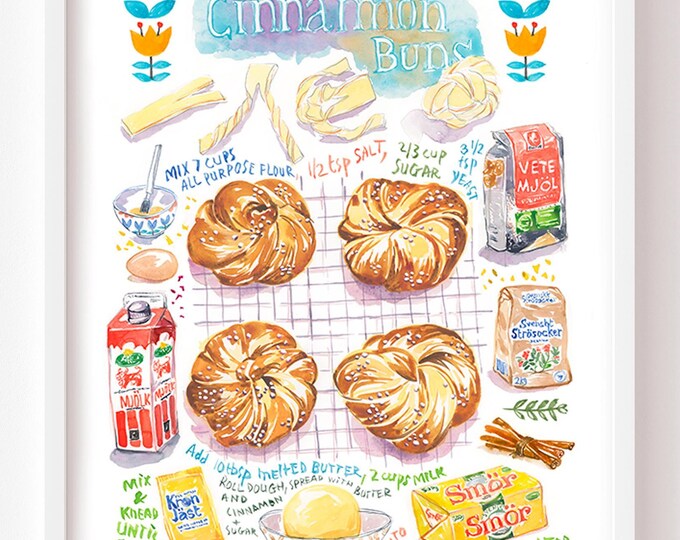 Cinnamon
Buns
MIX 7 CUPS
ALL PURPOSE FLOUR,
1/2 tsp SALT,
2/3 CUP
SUGAR
3 1/2
tsp
YEAST
VETE
MJÖL
Svenskt
Strösocker
2kg
MJÖLK
MJÖLK
Add 10tbsp melted BUTTER, 2 CUPS MILK
ROLL DOUGH, SPREAD WITH BUTTER
AND
CINNAMON
+
SUGAR
MIX
&
KNEAD
UNTIL
Kron
Jäst
TO
Smör
Smör